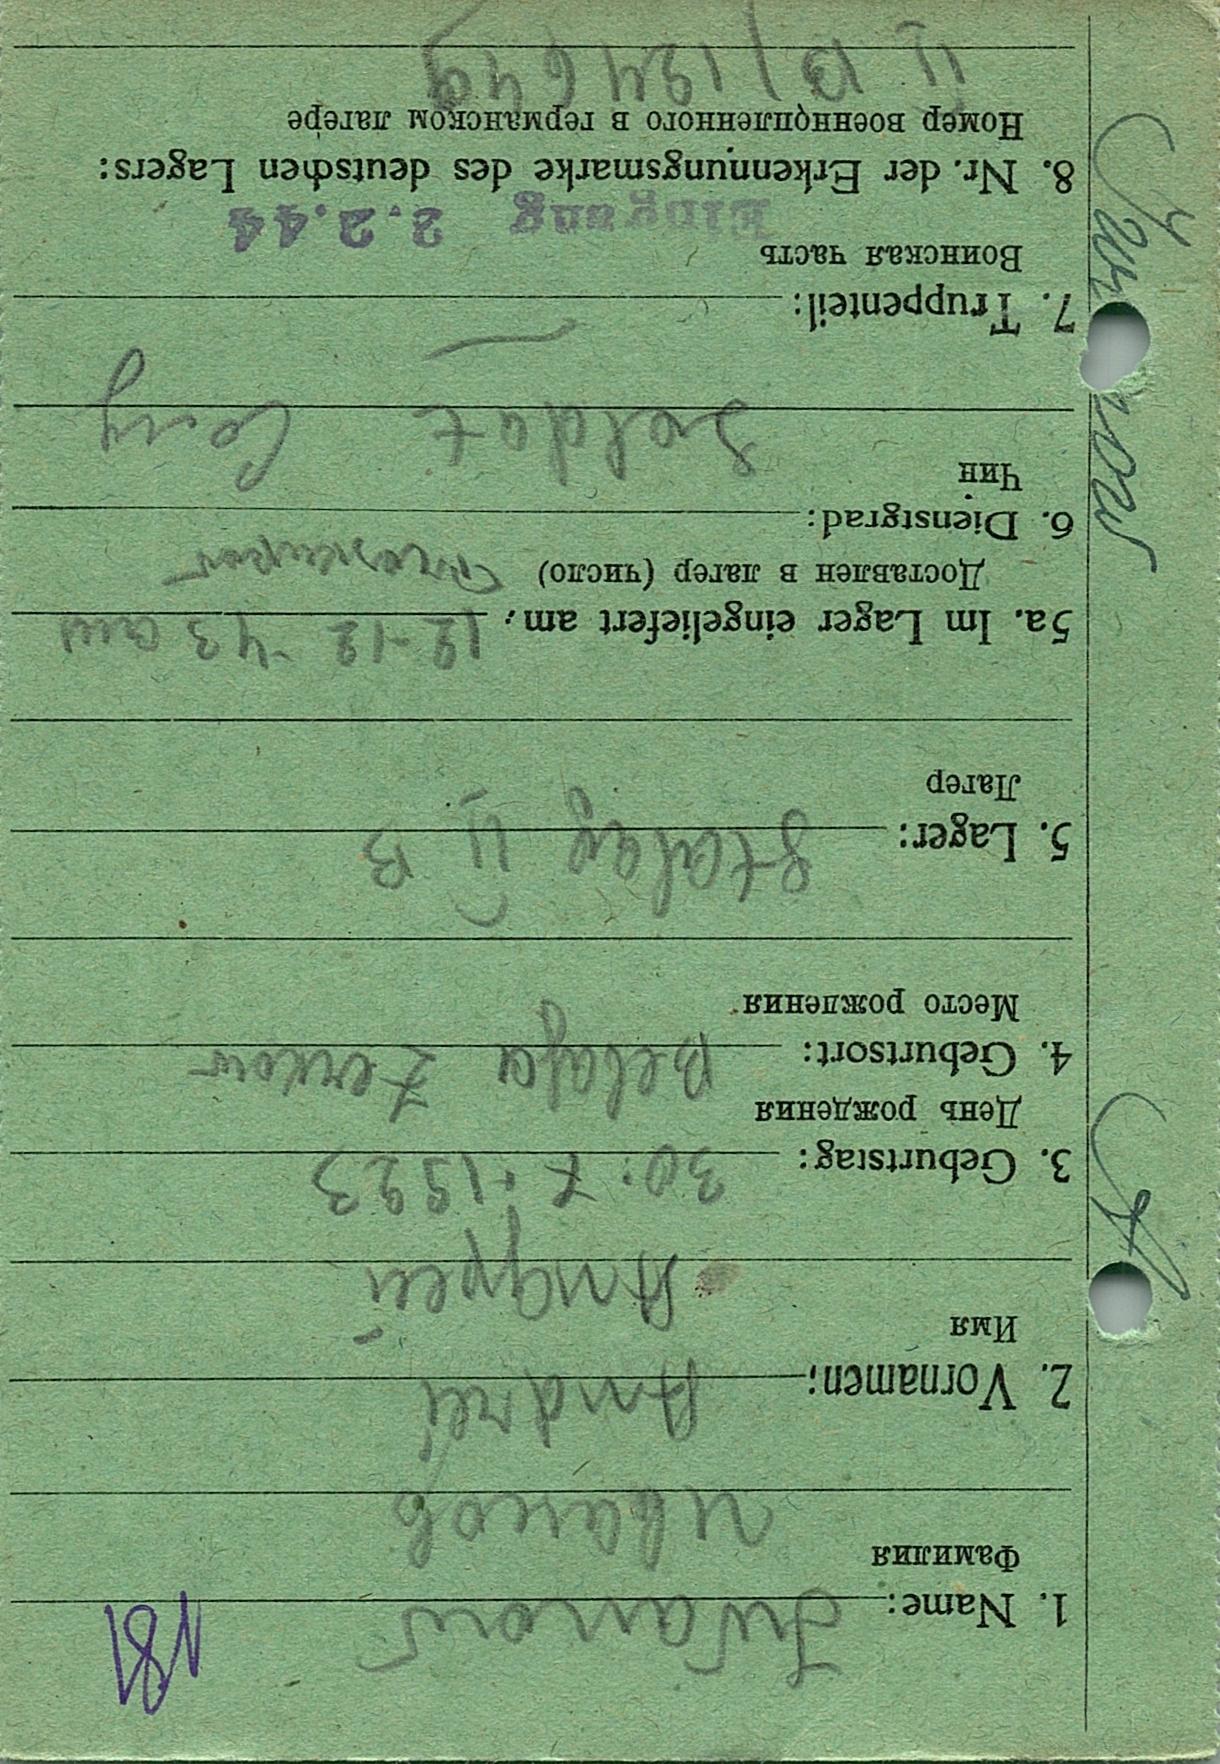 181
Iwanow
1. Name:
Фамилия
Иванов
Andrei
2. Vornamen:
Имя
Андрей
30. X. 1923
3. Geburtstag:
День рождения
Belaja Zerkow
4. Geburtsort:
Место рождения
Stalag II B
5. Lager:
Лагер
12-12-43 aus
5a. Im Lager eingeliefert am:
Доставлен в лагер (число)
6. Dienstgrad:
Чин
Soldat
7. Truppenteil:
Воинская часть
Eingang 2.2.44
8. Nr. der Erkennungsmarke des deutschen Lagers:
Номер военнопленного в германском лагере
II B/124649
A.
Iwanow